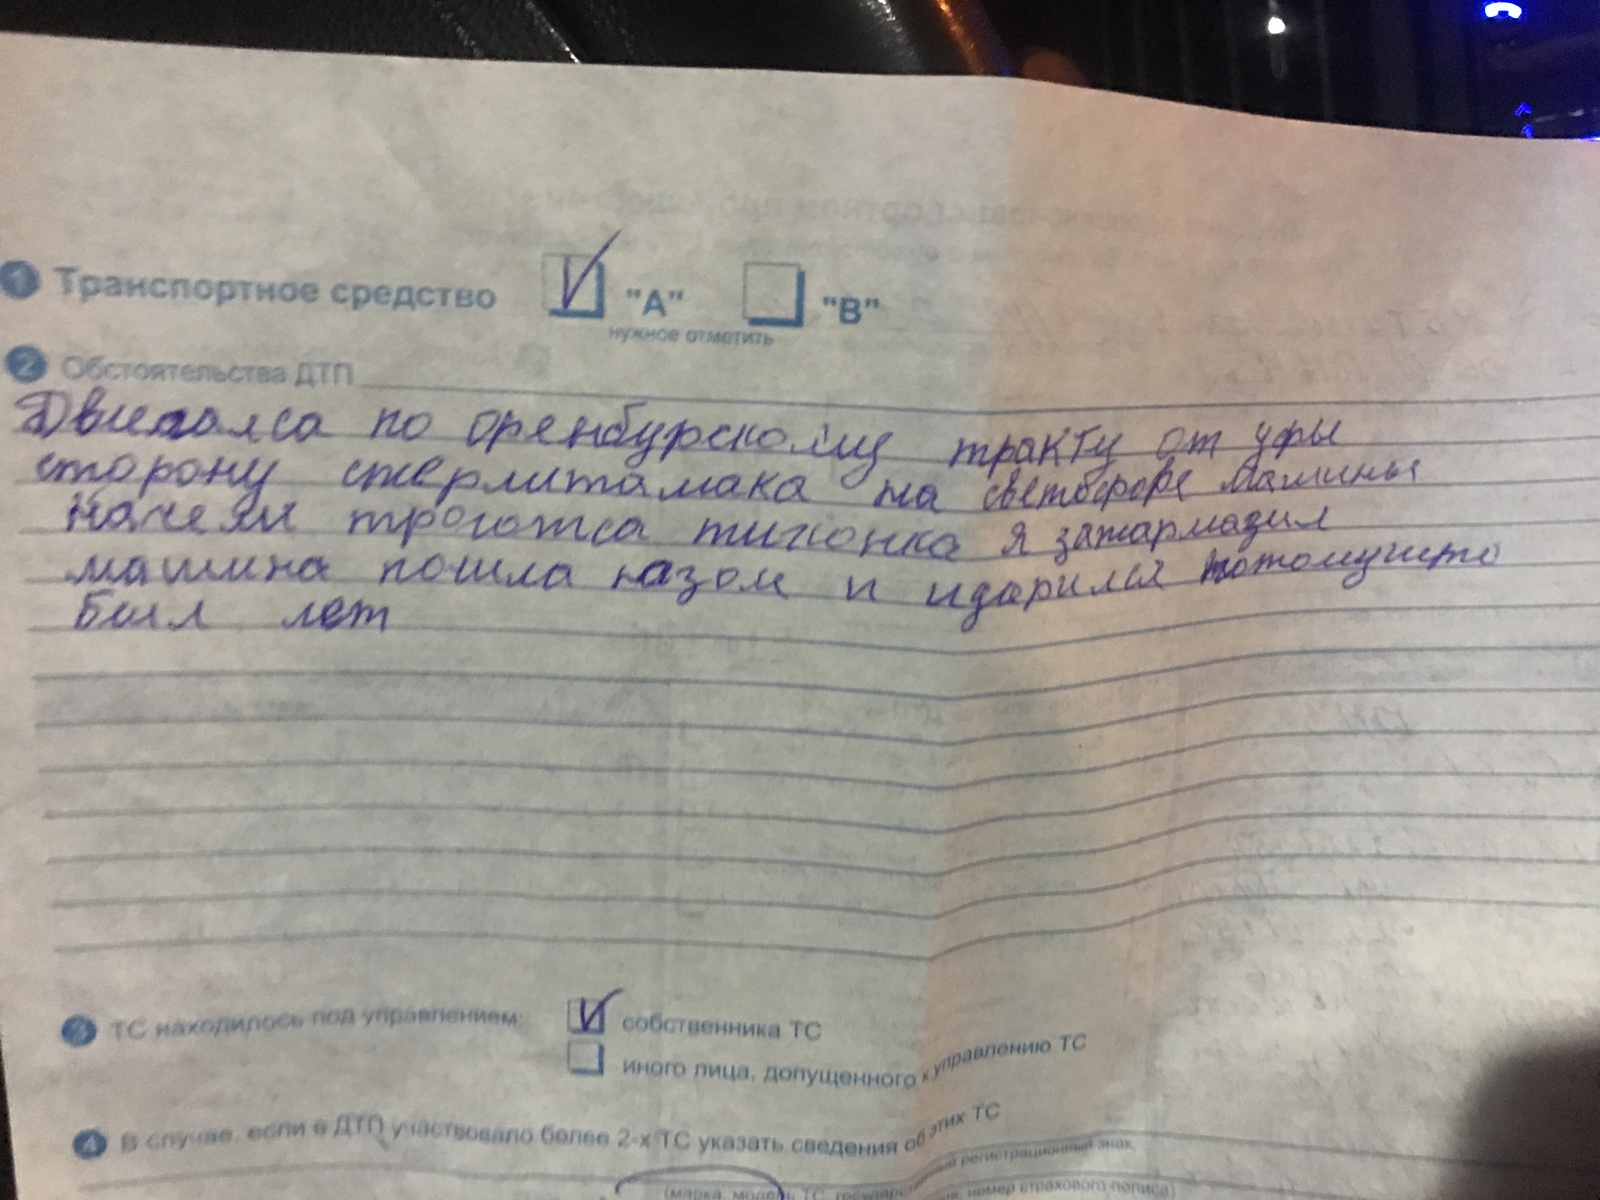 1 Транспортное средство "А" "В"
нужное отметить
2 Обстоятельства ДТП
Двигался по оренбурскому тракту от уфы
сторону стерлитамака на светофоре машины
начели троготса тихонка я затармазил
машина пошла казом и идарился потомушто
был лет
3 ТС находилось под управлением: собственника ТС
иного лица, допущенного к управлению ТС
4 В случае, если в ДТП участвовало более 2-х ТС указать сведения об этих ТС
(марка, модель ТС, государственный регистрационный знак,
номер страхового полиса)